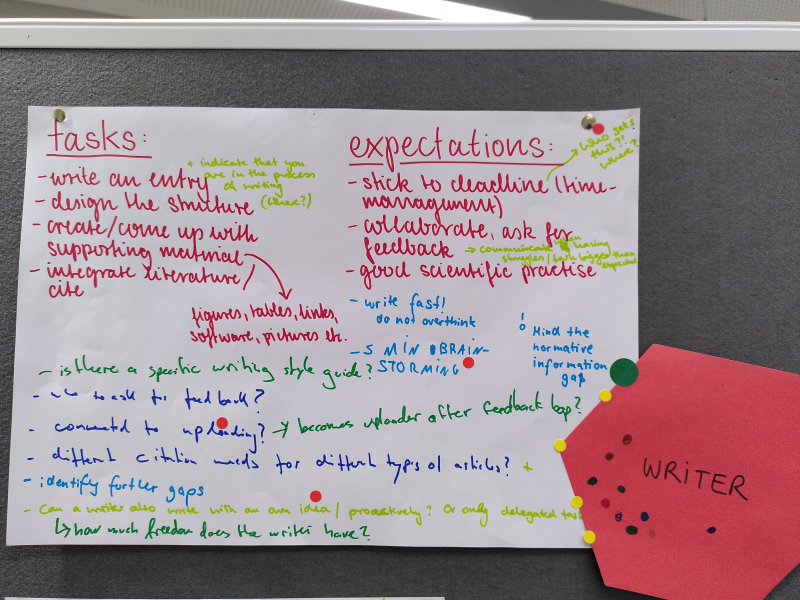 tasks:
- write an entry
+ indicate that you
are in the process
of writing
(where?)
- design the structure
- create/come up with
supporting material
- integrate literature/
cite
figures, tables, links,
software, pictures etc.
expectations:
who sets
this?!
where?
- stick to deadline (time-
management)
- collaborate, ask for
feedback
→ communicate when having
struggles/task bigger than
expected
- good scientific practise
- write fast!
do not overthink
- 5 MIN BRAIN-
STORMING
! Mind the
normative
information
gap
- is there a specific writing style guide?
- who to ask for feedback?
- connected to uploading? → becomes uploader after feedback loop?
- different citation needs for different types of articles? +
- identify further gaps
- Can a writer also write with an own idea / proactively? Or only delegated
↳ how much freedom does the writer have?
WRITER